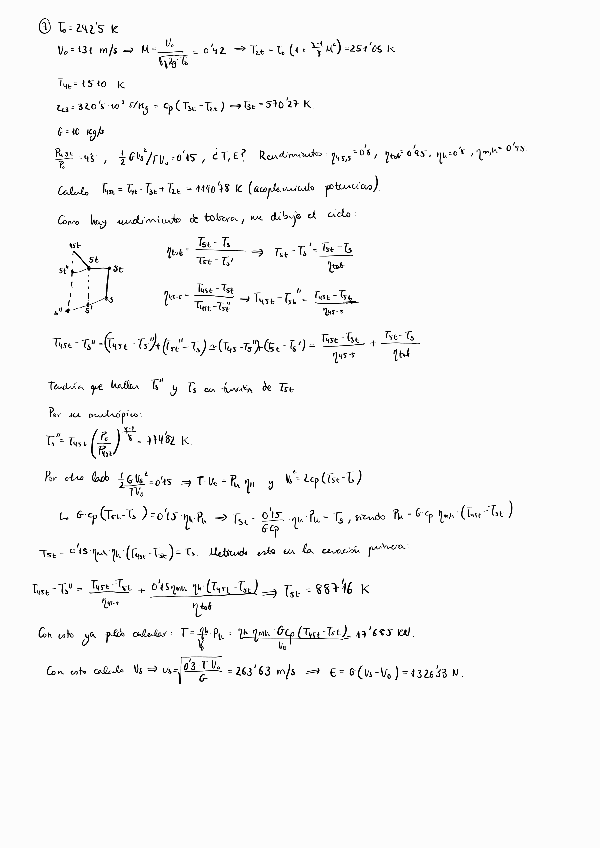 ① T₀ = 242'5 K
V₀ = 131 m/s ⇒ M = V₀/√(γRgT₀) = 0'42 → T₂t = T₀ (1 + (γ-1)/γ M²) = 251'05 K
T₄t = 1510 K
z₂₃ = 320'5·10³ J/kg = cp (T₃t - T₂t) → T₃t = 570'27 K
G = 10 kg/s
P₄₅t/P₀ = 43, ½GVs²/TV₀ = 0'15, ¿T, E? Rendimientos η₄₅,₅ = 0'8, ηtob = 0'95, ηh = 0'8, ηmh = 0'95
Calculo T₄₅t = T₄t - T₃t + T₂t = 1190'78 K (acoplamiento potencias).
Como hay rendimiento de tobera, me dibujo el ciclo:
45t
5t
5t''
5t
5
5'
5''
ηtob = (T₅t - T₅)/(T₅t - T₅') ⇒ T₅t - T₅' = (T₅t - T₅)/ηtob
η₄₅-₅ = (T₄₅t - T₅t)/(T₄₅t - T₅t'') → T₄₅t - T₅t'' = (T₄₅t - T₅t)/η₄₅-₅
Tendría que hallar T₅'' y T₅ en función de T₅t
Por ser isentrópico:
T₅'' = T₄₅t (P₀/P₄₅t)^((γ-1)/γ) = 774'82 K.
Por otro lado ½GVs²/TV₀ = 0'15 ⇒ T V₀ = Ph ηh y Vs² = 2cp (T₅t - T₅)
↳ G·cp (T₅t - T₅) = 0'15·ηh·Ph → T₅t = 0'15/Gcp · ηh·Ph - T₅, siendo Ph = G·cp ηmh·(T₄₅t - T₅t)
T₅t = 0'15·ηmh·ηh·(T₄₅t - T₅t) = T₅. Metiendo esto en la ecuación primera:
T₄₅t - T₅'' = (T₄₅t - T₅t)/η₄₅-₅ + 0'15ηmh ηh·(T₄₅t - T₅t)/ηtob ⇒ T₅t = 887'16 K
Con esto ya puedo calcular: T = ηh/V₀·Ph = ηh ηmh·Gcp (T₄₅t - T₅t)/V₀ = 17'685 kN.
Con esto calculo Vs ⇒ vs = √(0'3 T V₀/G) = 263'63 m/s ⇒ E = G (Vs - V₀) = 1326'33 N.